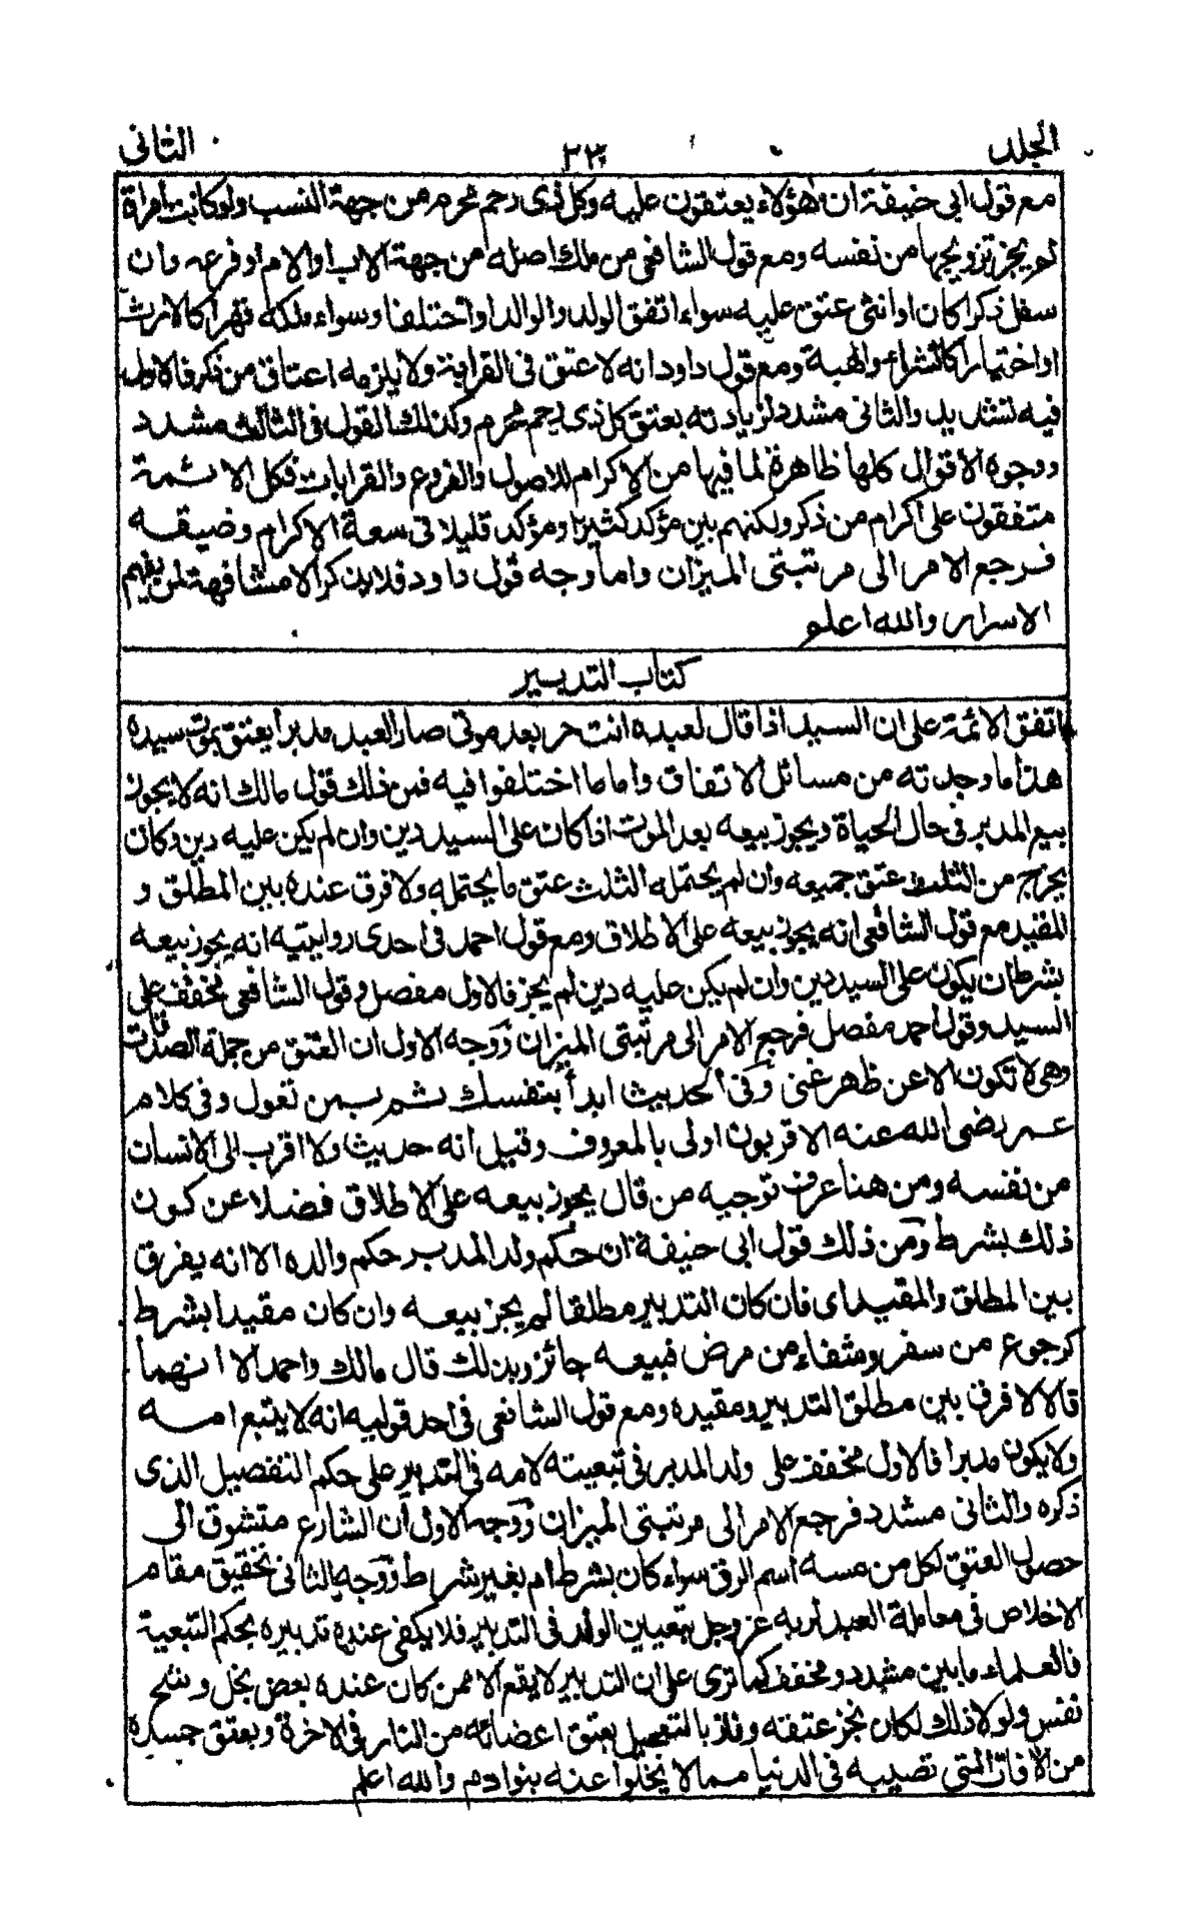 الجلد ٢٣٠ الثانى
مع قول ابى حنيفة ان هؤلاء يعتقون عليه وكل ذى رحم محرم من جهة النسب ولو كانت امرأة
لم يجز تزويجها من نفسه ومع قول الشافعى من ملك اصله من جهة الاب او الام او فرعه وان
سفل ذكرا كان او انثى عتق عليه سواء اتفق الولد والوالد او اختلفا وسواء ملكه قهرا كالارث
او اختيارا كالشراء والهبة ومع قول داود انه لا عتق فى القرابة ولا يلزمه اعتاق من ذكر فالاول
فيه تشديد والثانى مشدد لزيادته بعتق كل ذى رحم محرم وكذلك القول فى الثالث مشدد
ووجوه الاقوال كلها ظاهرة لما فيها من الاكرام للاصول والفروع والقرابات فكل الائمة
متفقون على اكرام من ذكر ولكنهم بين مؤكد كثيرا ومؤكد قليلا فى سعة الاكرام وضيقه
فرجع الامر الى مرتبتى الميزان واما وجه قول داود فلا يذكر الا مشافهة لمن يفهم
الاسرار والله اعلم
كتاب التدبير
اتفق الائمة على ان السيد اذا قال لعبده انت حر بعد موتى صار العبد مدبرا يعتق بموت سيده
هذا ما وجدته من مسائل الاتفاق واما ما اختلفوا فيه فمن ذلك قول مالك انه لا يجوز
بيع المدبر فى حال الحياة ويجوز بيعه بعد الموت اذا كان على السيد دين وان لم يكن عليه دين وكان
يخرج من الثلث عتق جميعه وان لم يحتمله الثلث عتق ما يحتمله ولا فرق عنده بين المطلق و
المقيد مع قول الشافعى انه يجوز بيعه على الاطلاق ومع قول احمد فى احدى روايتيه انه يجوز بيعه
بشرط ان يكون على السيد دين وان لم يكن عليه دين لم يجز فالاول مفصل وقول الشافعى مخفف على
السيد وقول احمد مفصل فرجع الامر الى مرتبتى الميزان ووجه الاول ان العتق من جملة الصدقات
وهى لا تكون الا عن ظهر غنى وفى الحديث ابدأ بنفسك ثم بمن تعول وفى كلام
عمر رضى الله عنه الاقربون اولى بالمعروف وقيل انه حديث ولا اقرب الى الانسان
من نفسه ومن هنا عرف توجيه من قال يجوز بيعه على الاطلاق فضلا عن كون
ذلك بشرط ومن ذلك قول ابى حنيفة ان حكم ولد المدبر حكم والده الا انه يفرق
بين المطلق والمقيد اى فان كان التدبير مطلقا لم يجز بيعه وان كان مقيدا بشرط
كرجوع من سفر وشفاء من مرض فبيعه جائز وبذلك قال مالك واحمد الا انهما
قالا لا فرق بين مطلق التدبير ومقيده ومع قول الشافعى فى احد قوليه انه لا يتبع امه
ولا يكون مدبرا فالاول مخفف على ولد المدبر فى تبعيته لامه فى التدبير على حكم التفصيل الذى
ذكره والثانى مشدد فرجع الامر الى مرتبتى الميزان ووجه الاول ان الشارع متشوق الى
حصول العتق لكل من مسه اسم الرق سواء كان بشرط ام بغير شرط ووجه الثانى تحقيق مقام
الاخلاص فى معاملة العبد لربه عز وجل بتعيين الولد فى التدبير فلا يكفى عنده تدبيره بحكم التبعية
فالعلماء ما بين مشدد ومخفف كما ترى على ان التدبير لا يقع الا ممن كان عنده بعض بخل وشح
نفس ولولا ذلك لكان نجز عتقه وفاز بالتعجيل بعتق اعضائه من النار فى الاخرة وبعتق جسده
من الافات التى تصيبه فى الدنيا مما لا يخلوا عنه بنوادم والله اعلم